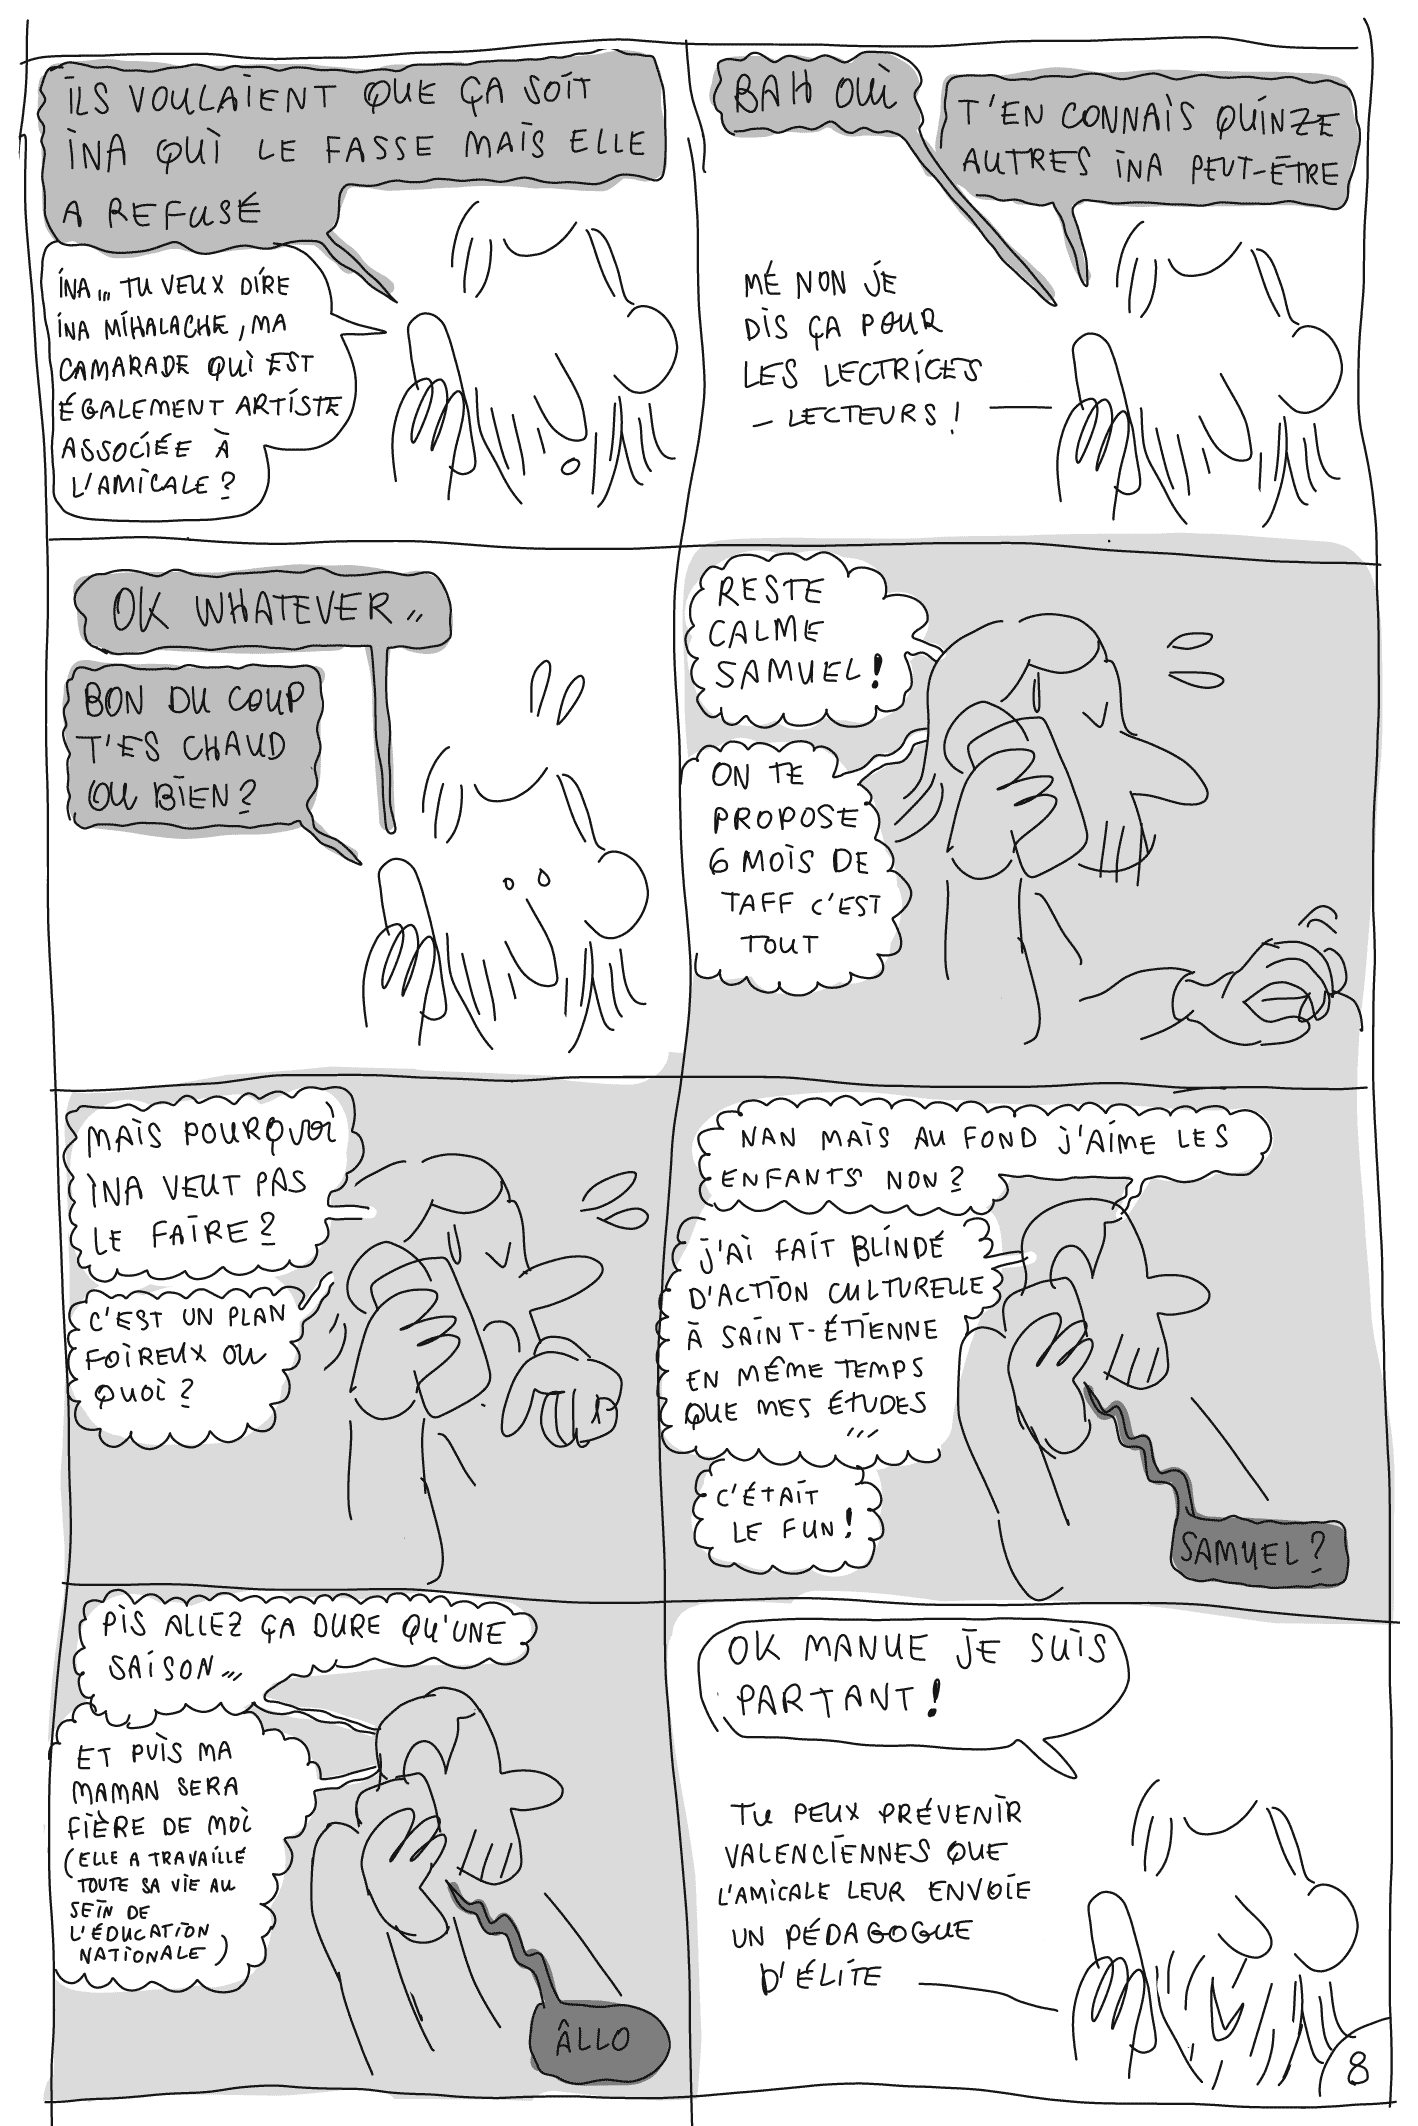 ILS VOULAIENT QUE ÇA SOIT
INA QUI LE FASSE MAIS ELLE
A REFUSÉ
INA... TU VEUX DIRE
INA MIHALACHE, MA
CAMARADE QUI EST
ÉGALEMENT ARTISTE
ASSOCIÉE À
L'AMICALE ?
BAH OUI
T'EN CONNAIS QUINZE
AUTRES INA PEUT-ÊTRE
MÉ NON JE
DIS ÇA POUR
LES LECTRICES
- LECTEURS !
OK WHATEVER..
BON DU COUP
T'ES CHAUD
OU BIEN ?
RESTE
CALME
SAMUEL !
ON TE
PROPOSE
6 MOIS DE
TAFF C'EST
TOUT
MAIS POURQUOI
INA VEUT PAS
LE FAIRE ?
C'EST UN PLAN
FOIREUX OU
QUOI ?
NAN MAIS AU FOND J'AIME LES
ENFANTS NON ?
J'AI FAIT BLINDÉ
D'ACTION CULTURELLE
À SAINT-ÉTIENNE
EN MÊME TEMPS
QUE MES ÉTUDES
...
C'ÉTAIT
LE FUN !
SAMUEL ?
PIS ALLEZ ÇA DURE QU'UNE
SAISON...
ET PUIS MA
MAMAN SERA
FIÈRE DE MOI
(ELLE A TRAVAILLÉ
TOUTE SA VIE AU
SEIN DE
L'ÉDUCATION
NATIONALE)
ÂLLO
OK MANUE JE SUIS
PARTANT !
TU PEUX PRÉVENIR
VALENCIENNES QUE
L'AMICALE LEUR ENVOIE
UN PÉDAGOGUE
D'ÉLITE
8